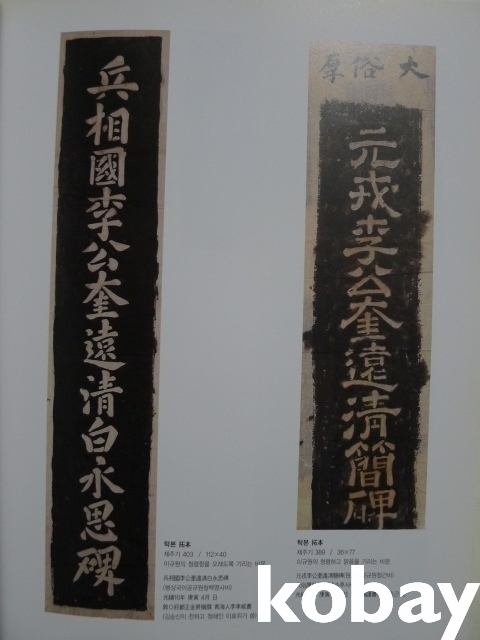 兵相國李公奎遠清白永思碑
大俗厚
元戎李公奎遠清簡碑
탁본 拓本
제주기 403 / 112×40
이규원의 청렴함을 오래도록 기리는 비문
兵相國李公奎遠淸白永思碑
(병상국이공규원청백영사비)
光緖16年 庚寅 4月 日
탁본 拓本
제주기 389 / 36×77
이규원의 청렴하고 맑음을 기리는 비문
kobay